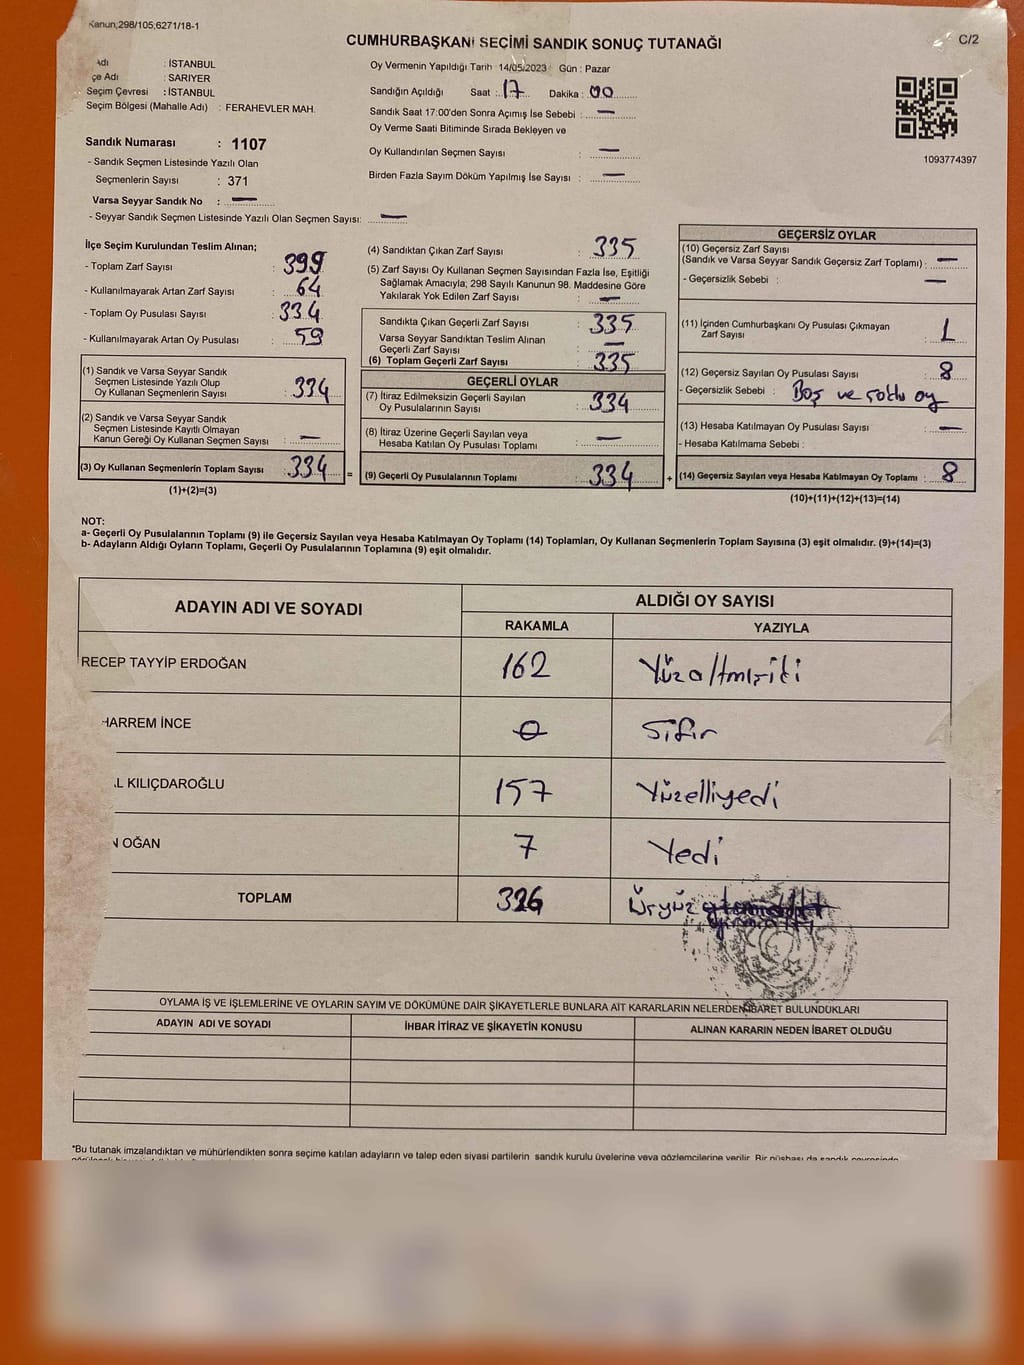 Kanun;298/105;6271/18-1
CUMHURBAŞKANI SEÇİMİ SANDIK SONUÇ TUTANAĞI
C/2
Adı : İSTANBUL
çe Adı : SARIYER
Seçim Çevresi : İSTANBUL
Seçim Bölgesi (Mahalle Adı) : FERAHEVLER MAH.
Sandık Numarası : 1107
- Sandık Seçmen Listesinde Yazılı Olan
Seçmenlerin Sayısı : 371
Varsa Seyyar Sandık No : —
- Seyyar Sandık Seçmen Listesinde Yazılı Olan Seçmen Sayısı: —
Oy Vermenin Yapıldığı Tarih : 14/05/2023 Gün : Pazar
Sandığın Açıldığı Saat : 17 Dakika : 00
Sandık Saat 17:00'den Sonra Açımış İse Sebebi : —
Oy Verme Saati Bitiminde Sırada Bekleyen ve
Oy Kullandırılan Seçmen Sayısı : —
Birden Fazla Sayım Döküm Yapılmış İse Sayısı : —
1093774397
İlçe Seçim Kurulundan Teslim Alınan;
- Toplam Zarf Sayısı : 399
- Kullanılmayarak Artan Zarf Sayısı : 64
- Toplam Oy Pusulası Sayısı : 334
- Kullanılmayarak Artan Oy Pusulası : 59
(1) Sandık ve Varsa Seyyar Sandık
Seçmen Listesinde Yazılı Olup
Oy Kullanan Seçmenlerin Sayısı : 334
(2) Sandık ve Varsa Seyyar Sandık
Seçmen Listesinde Kayıtlı Olmayan
Kanun Gereği Oy Kullanan Seçmen Sayısı : —
(3) Oy Kullanan Seçmenlerin Toplam Sayısı : 334 =
(1)+(2)=(3)
(4) Sandıktan Çıkan Zarf Sayısı : 335
(5) Zarf Sayısı Oy Kullanan Seçmen Sayısından Fazla İse, Eşitliği
Sağlamak Amacıyla; 298 Sayılı Kanunun 98. Maddesine Göre
Yakılarak Yok Edilen Zarf Sayısı : —
Sandıkta Çıkan Geçerli Zarf Sayısı : 335
Varsa Seyyar Sandıktan Teslim Alınan
Geçerli Zarf Sayısı : —
(6) Toplam Geçerli Zarf Sayısı : 335
GEÇERLİ OYLAR
(7) İtiraz Edilmeksizin Geçerli Sayılan
Oy Pusulalarının Sayısı : 334
(8) İtiraz Üzerine Geçerli Sayılan veya
Hesaba Katılan Oy Pusulası Toplamı : —
(9) Geçerli Oy Pusulalarının Toplamı : 334 +
GEÇERSİZ OYLAR
(10) Geçersiz Zarf Sayısı
(Sandık ve Varsa Seyyar Sandık Geçersiz Zarf Toplamı) : —
- Geçersizlik Sebebi : —
(11) İçinden Cumhurbaşkanı Oy Pusulası Çıkmayan
Zarf Sayısı : 1
(12) Geçersiz Sayılan Oy Pusulası Sayısı : 8
- Geçersizlik Sebebi : Boş ve oy
(13) Hesaba Katılmayan Oy Pusulası Sayısı : —
- Hesaba Katılmama Sebebi :
(14) Geçersiz Sayılan veya Hesaba Katılmayan Oy Toplamı : 8
(10)+(11)+(12)+(13)=(14)
NOT:
a- Geçerli Oy Pusulalarının Toplamı (9) ile Geçersiz Sayılan veya Hesaba Katılmayan Oy Toplamı (14) Toplamları, Oy Kullanan Seçmenlerin Toplam Sayısına (3) eşit olmalıdır. (9)+(14)=(3)
b- Adayların Aldığı Oyların Toplamı, Geçerli Oy Pusulalarının Toplamına (9) eşit olmalıdır.
ADAYIN ADI VE SOYADI ALDIĞI OY SAYISI
RAKAMLA YAZIYLA
RECEP TAYYİP ERDOĞAN 162 Yüzaltmışiki
HARREM İNCE 0 Sıfır
AL KILIÇDAROĞLU 157 Yüzelliyedi
N OĞAN 7 Yedi
TOPLAM 326 Üçyüz
OYLAMA İŞ VE İŞLEMLERİNE VE OYLARIN SAYIM VE DÖKÜMÜNE DAİR ŞİKAYETLERLE BUNLARA AİT KARARLARIN NELERDEN İBARET BULUNDUKLARI
ADAYIN ADI VE SOYADI İHBAR İTİRAZ VE ŞİKAYETİN KONUSU ALINAN KARARIN NEDEN İBARET OLDUĞU
*Bu tutanak imzalandıktan ve mühürlendikten sonra seçime katılan adayların ve talep eden siyasi partilerin sandık kurulu üyelerine veya gözlemcilerine verilir. Bir nüshası da sandık çevresinde